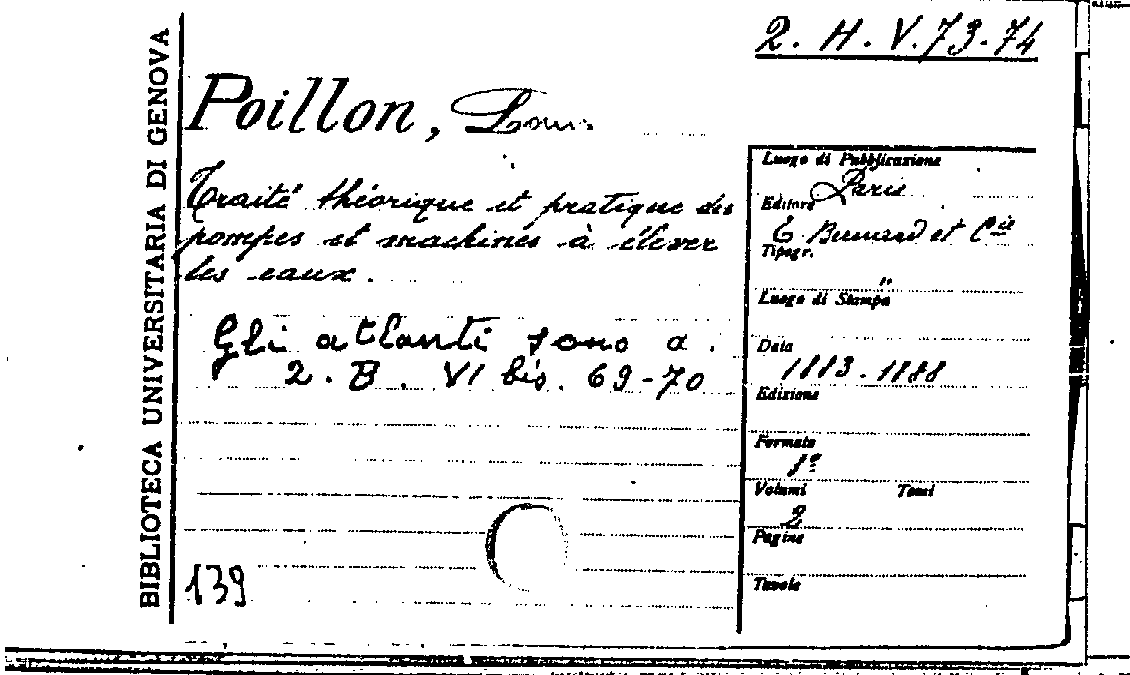 BIBLIOTECA UNIVERSITARIA DI GENOVA
2. H. V. 73-74
Poillon, Louis
Traité théorique et pratique des
pompes et machines à élever
les eaux.
Gli atlanti sono a.
2. B. VI bis. 69-70
139
Luogo di Pubblicazione
Paris
Editore
E. Bernard et Cie
Tipogr.
"
Luogo di Stampa
Data
1883-1888
Edizione
Formato
8º
Volumi Tomi
2
Pagine
Tavole